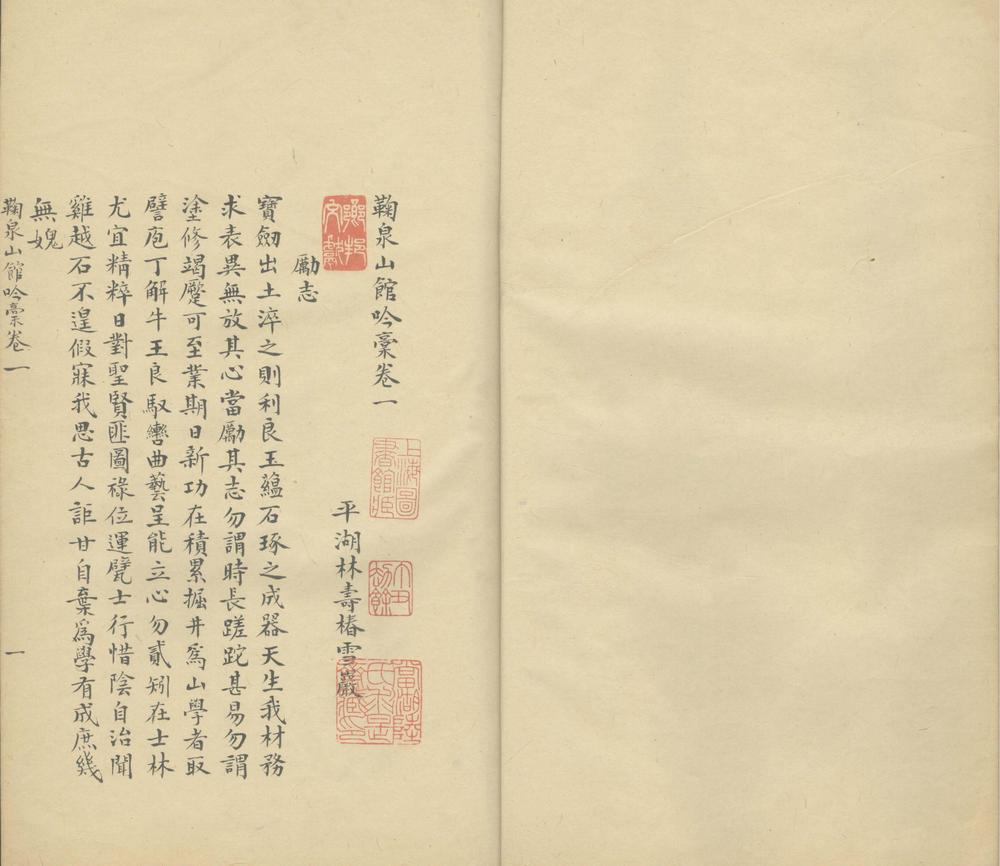 鞠泉山館吟稾卷一
平湖林壽椿雪巖
勵志
寶劒出土淬之則利良玉蘊石琢之成器天生我材務
求表異無放其心當勵其志勿謂時長蹉跎甚易勿謂
塗修竭蹷可至業期日新功在積累掘井爲山學者取
譬庖丁解牛王良馭轡曲藝呈能立心勿貳矧在士林
尤宜精粹日對聖賢匪圖祿位運甓士行惜陰自治聞
雞越石不遑假寐我思古人詎甘自棄爲學有成庶幾
無媿
鞠泉山館吟稾卷一
一
上海圖書館藏